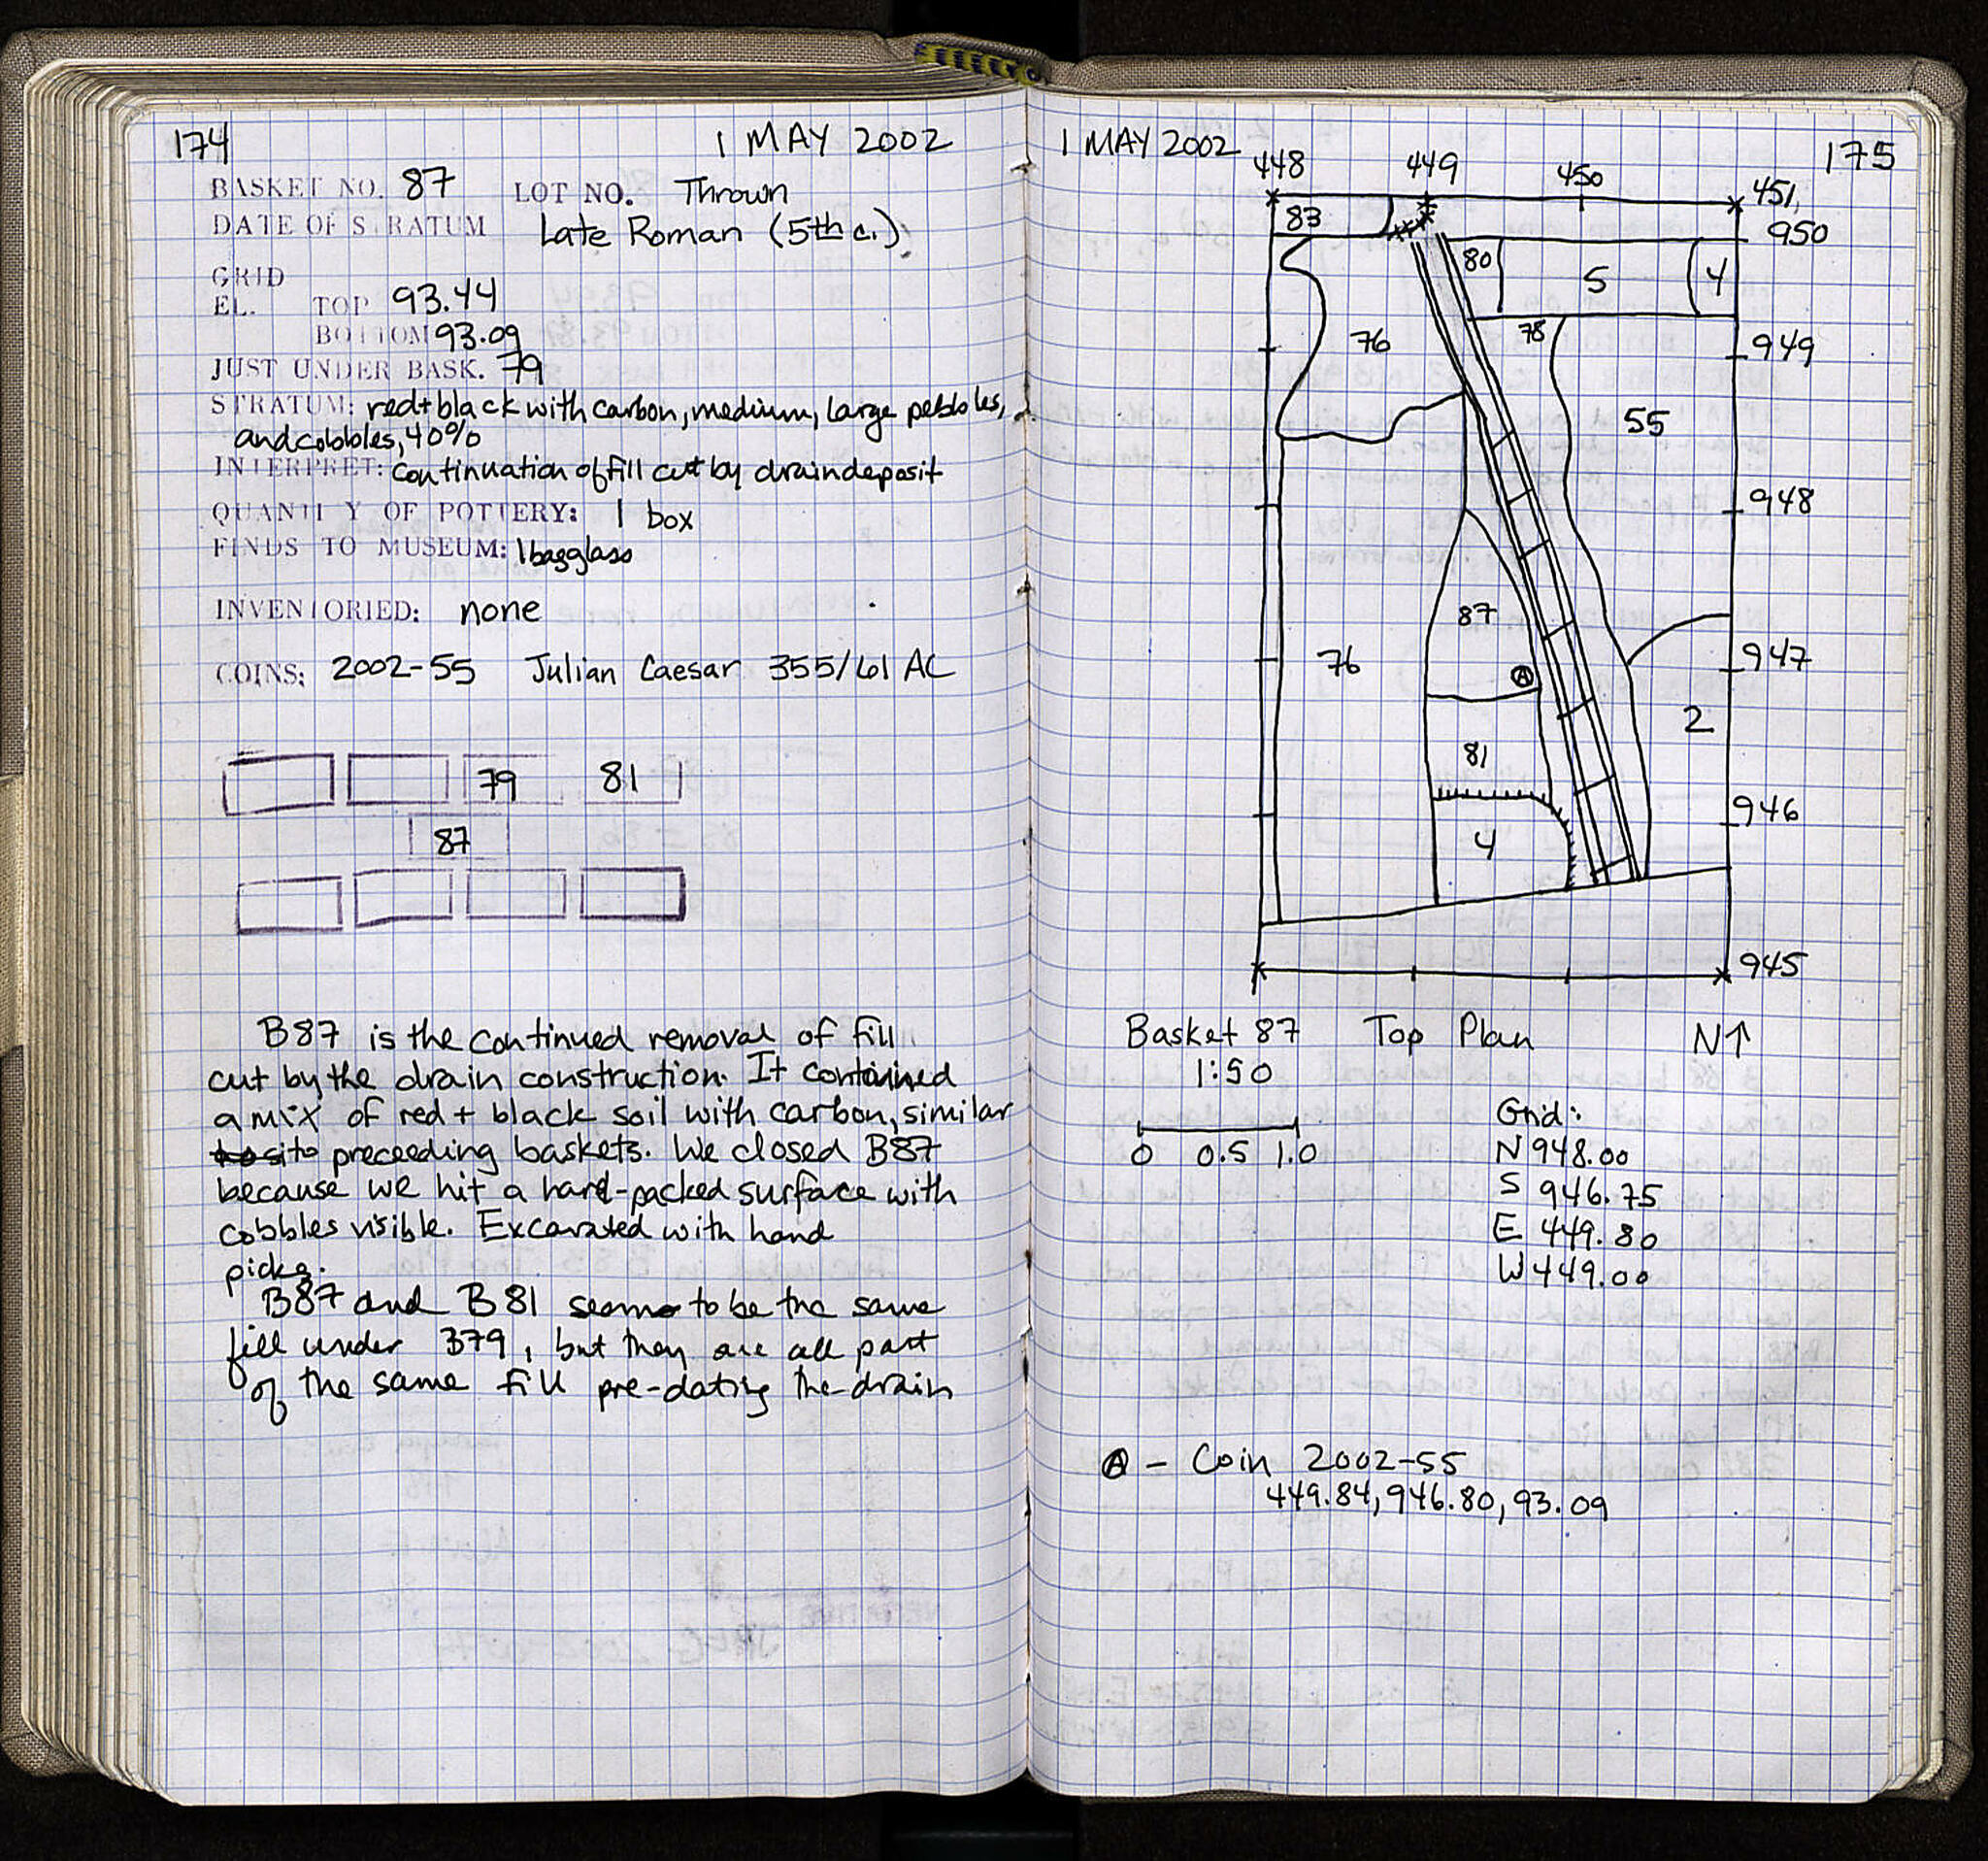 174
1 MAY 2002
BASKET NO. 87 LOT NO. Thrown
DATE OF STRATUM Late Roman (5th c.)
GRID
EL. TOP 93.44
BOTTOM 93.09
JUST UNDER BASK. 79
STRATUM: red+black with carbon, medium, large pebbles,
and cobbles, 40%
INTERPRET: continuation of fill cut by drain deposit
QUANTITY OF POTTERY: 1 box
FINDS TO MUSEUM: 1 bag glass
INVENTORIED: none
COINS: 2002-55 Julian Caesar 355/61 AC
79 81
87
B87 is the continued removal of fill
cut by the drain construction. It contained
a mix of red + black soil with carbon, similar
to preceeding baskets. We closed B87
because we hit a hard-packed surface with
cobbles visible. Excavated with hand
picks.
B87 and B81 seem to be the same
fill under B79, but they are all part
of the same fill pre-dating the drain
1 MAY 2002
175
448 449 450 451,
950
83
80 5 4
76 78
949
55
948
87
76
A
947
2
81
946
4
945
Basket 87 Top Plan N↑
1:50
0 0.5 1.0
Grid:
N 948.00
S 946.75
E 449.80
W 449.00
A - Coin 2002-55
449.84, 946.80, 93.09